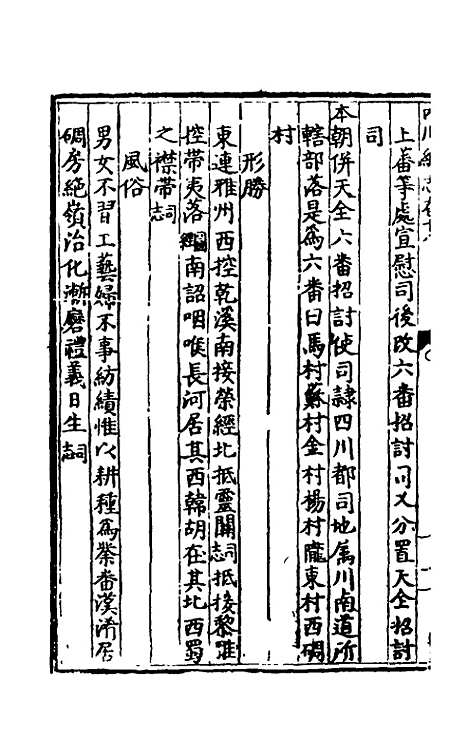 上蕃等處宣慰司後改六番招討司又分置天全招討
司
本朝併天全六番招討使司隸四川都司地屬川南道所
轄部落是為六番曰馬村蘇村金村楊村隴東村西碉
村
形勝
東連雅州西控乾溪南接榮經北抵靈關志詞抵接黎雅
控帶夷落南詔咽喉長河居其西韓胡在其北西蜀
之襟帶志詞
風俗
男女不習工藝婦不事紡績惟以耕種為業番漢淆居
碉房絕嶺治化漸磨禮義日生志詞